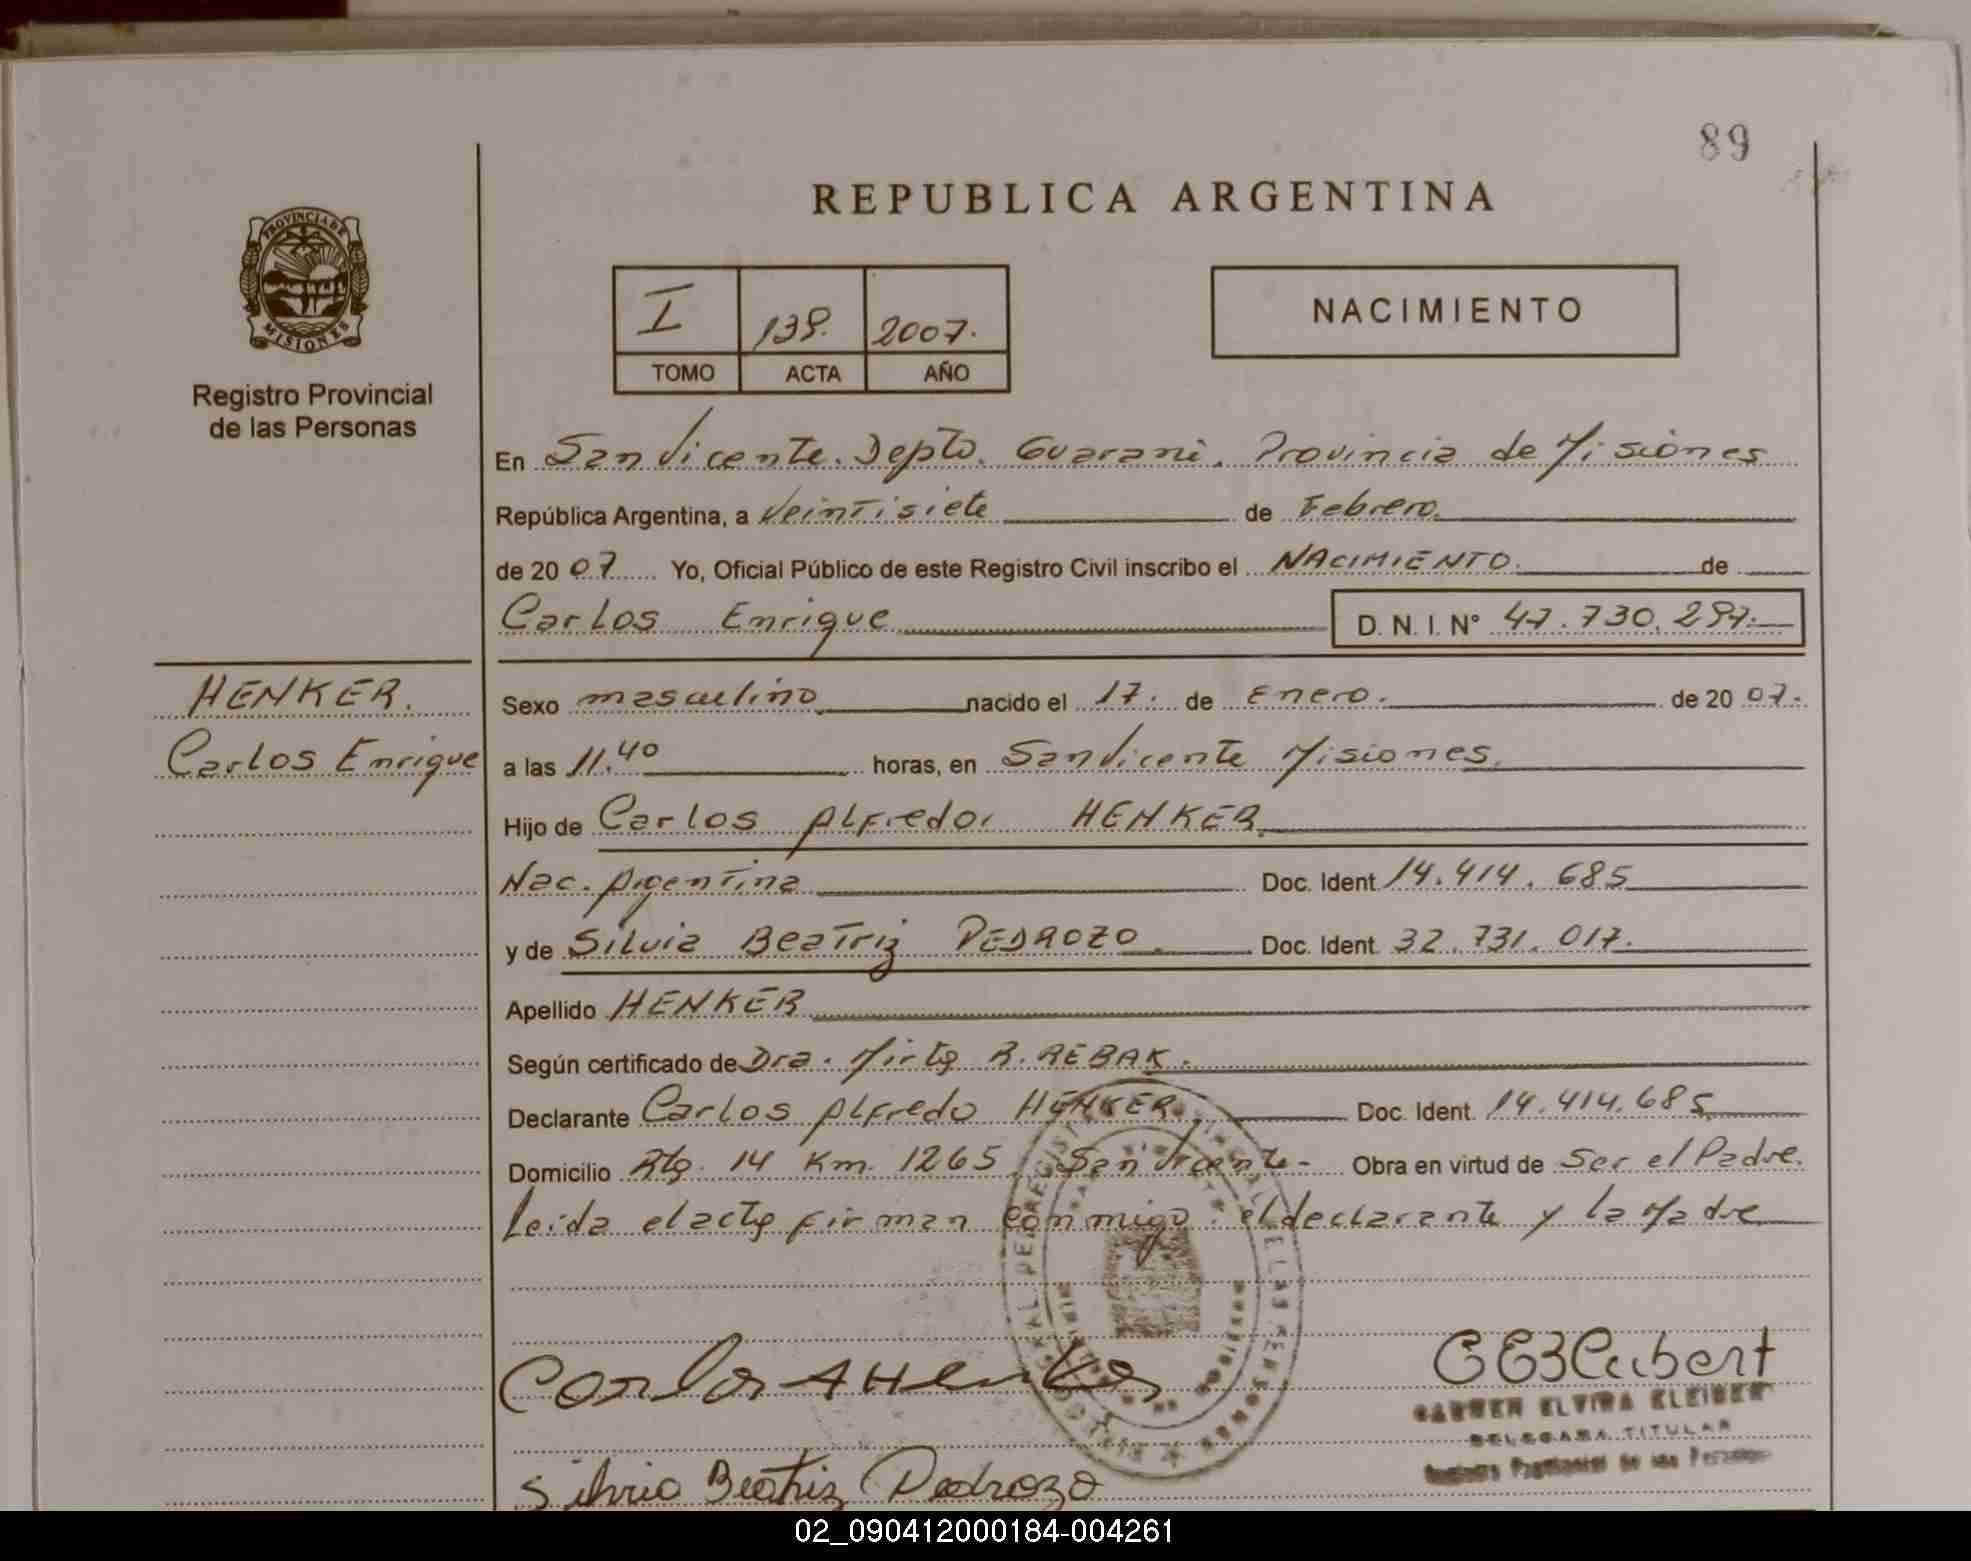 89
REPUBLICA ARGENTINA
PROVINCIA DE
MISIONES
Registro Provincial
de las Personas
I 138. 2007.
TOMO ACTA AÑO
NACIMIENTO
En San Vicente. Depto. Guarani. Provincia de Misiones
República Argentina, a Veintisiete de Febrero
de 2007 Yo, Oficial Público de este Registro Civil inscribo el NACIMIENTO. de
Carlos Enrique D. N. I. N° 47.730.297.
HENKER.
Carlos Enrique
Sexo masculino nacido el 17. de Enero. de 2007.
a las 11.40 horas, en San Vicente Misiones.
Hijo de Carlos Alfredo. HENKER.
Nac. Argentina Doc. Ident 14.414.685
y de Silvia Beatriz PEDROZO. Doc. Ident. 32.731.017.
Apellido HENKER
Según certificado de Dra. Mirta R. REBAK.
Declarante Carlos Alfredo HENKER. Doc. Ident. 14.414.685
Domicilio Rta. 14 Km. 1265. San Vicente- Obra en virtud de Ser el Padre.
Leida el acta firman conmigo. el declarante y la Madre
Carlos A Henker
CARMEN ELVIRA KLEIBER
DELEGADA TITULAR
Registro Provincial de las Personas
Silvia Beatriz Pedrozo
02_090412000184-004261